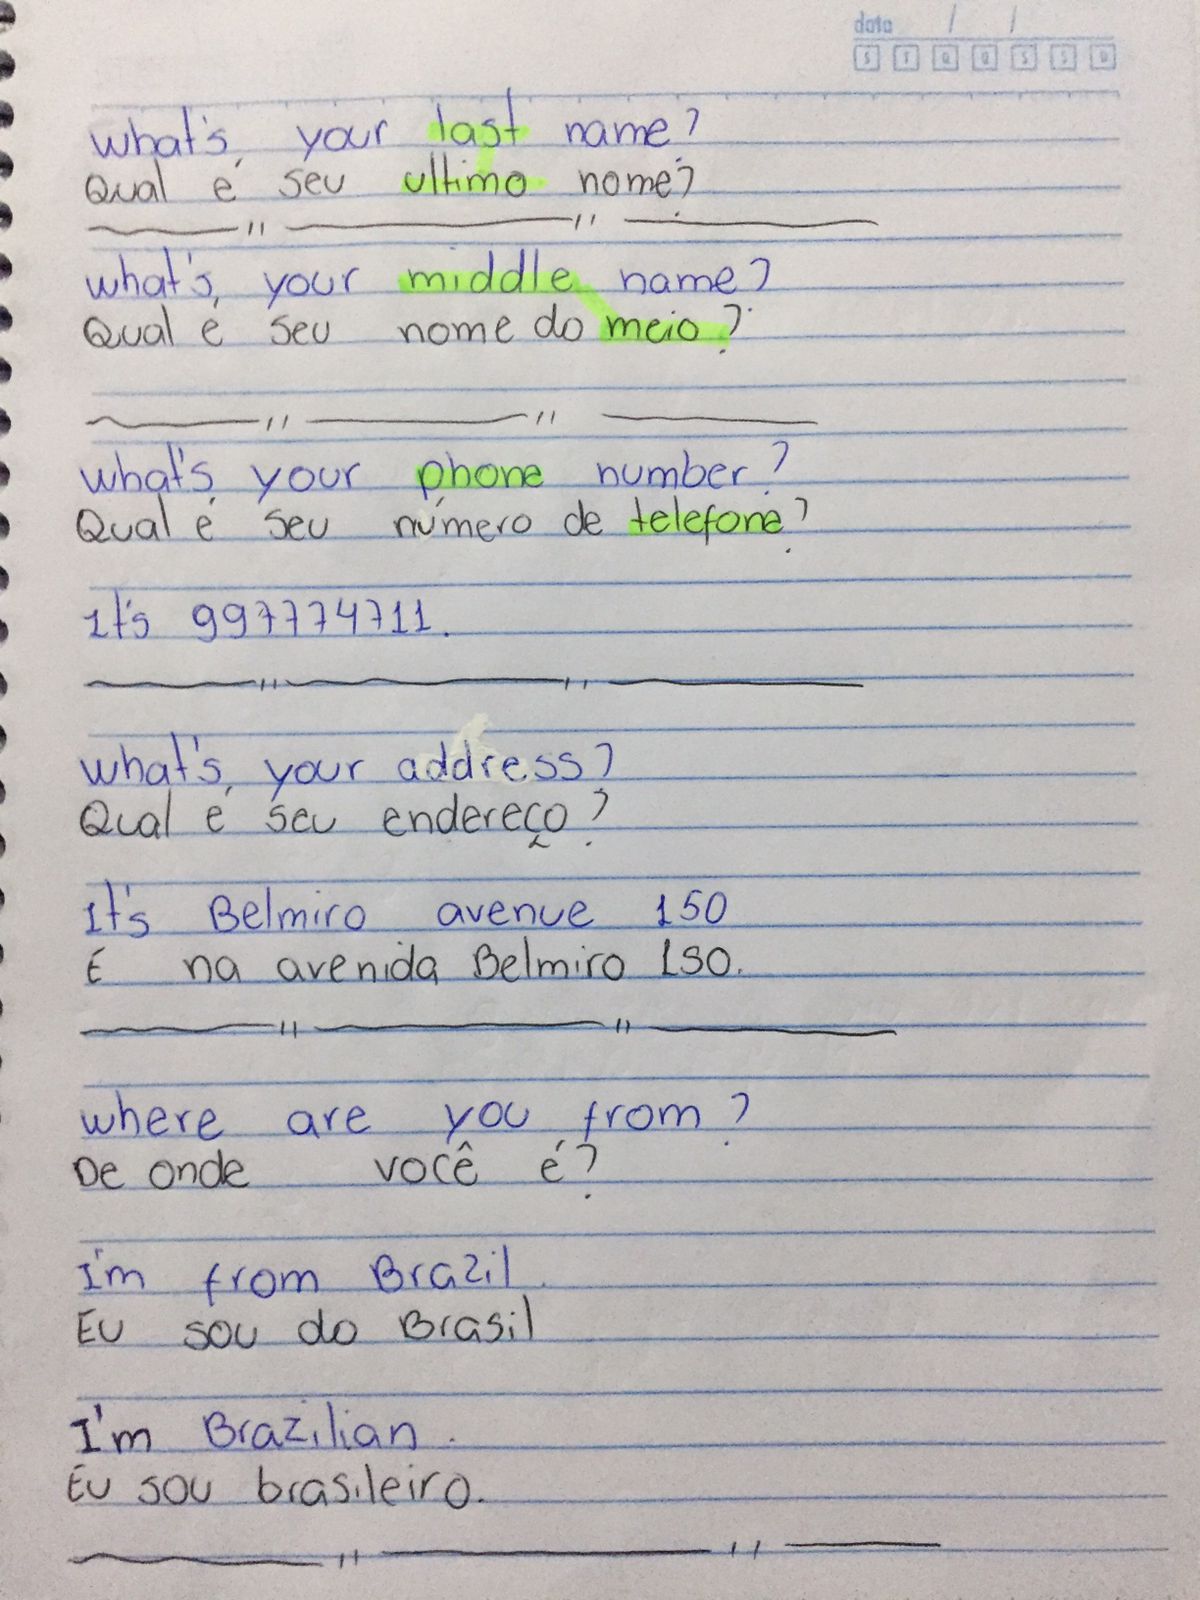 data / /
S T Q Q S S D
what's, your last name?
Qual é seu ultimo nome?
what's, your middle name?
Qual é seu nome do meio?
what's your phone number?
Qual é seu número de telefone?
It's 997774711.
what's, your address?
Qual é seu endereço?
It's Belmiro avenue 150
É na avenida Belmiro 150.
where are you from?
De onde você é?
I'm from Brazil.
Eu sou do Brasil
I'm Brazilian.
Eu sou brasileiro.